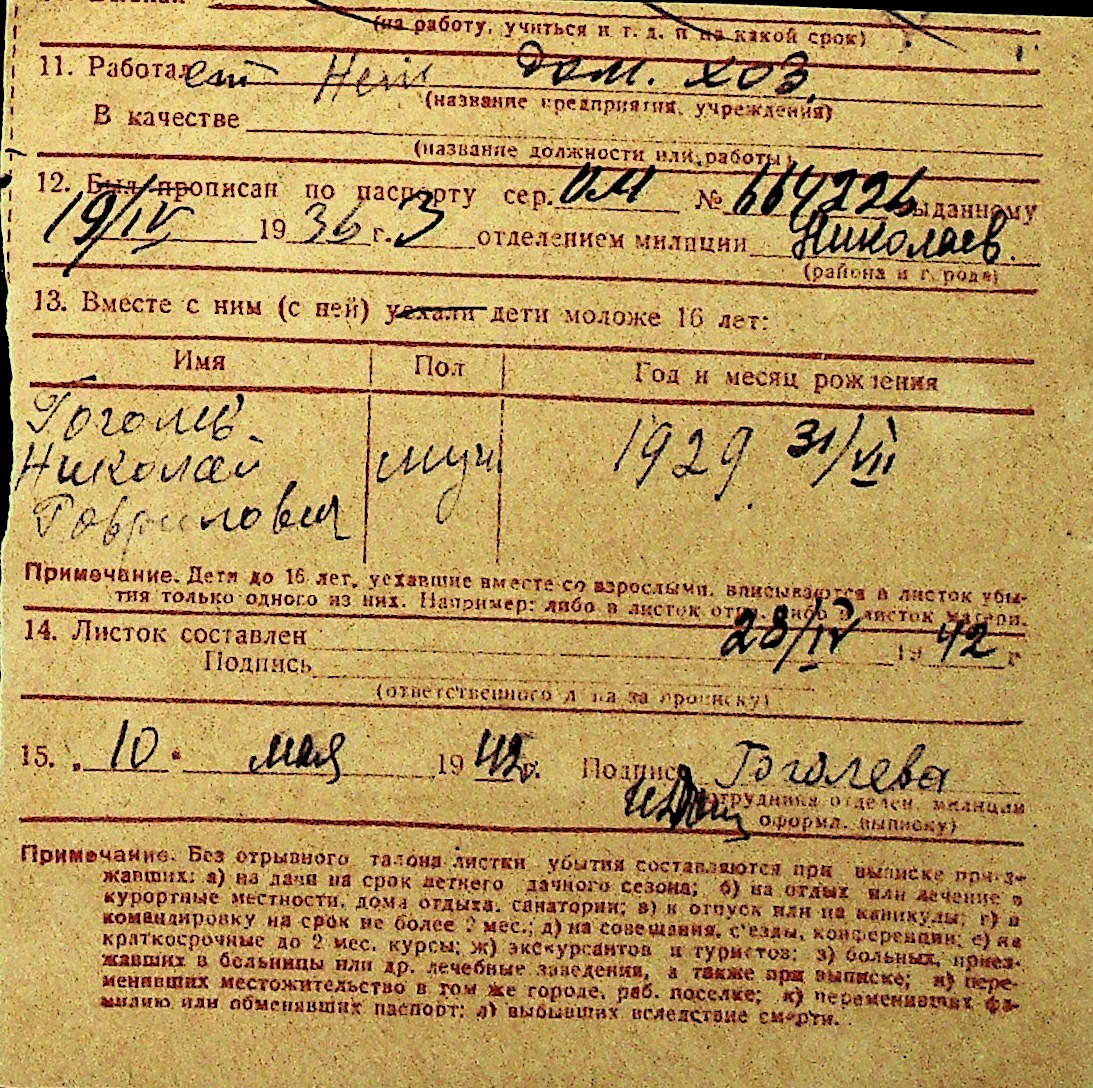 (на работу, учиться и т. д. и на какой срок)
11. Работает Нет дом. хоз.
(название предприятия, учреждения)
В качестве
(название должности или работы)
12. Был прописан по паспорту сер. № 664226 выданному
19/IV 1936 г. 3 отделением милиции Николаев.
(района и города)
13. Вместе с ним (с ней) уехали дети моложе 16 лет:
Имя Пол Год и месяц рождения
Гоголев
Николай муж 1929 31/VII
Гаврилович
Примечание. Дети до 16 лет, уехавшие вместе со взрослыми, вписываются в листок убы-
тия только одного из них. Например: либо в листок отца, либо в листок матери.
14. Листок составлен 28/IV 1942 г
Подпись
(ответственного лица за прописку)
15. „10“ мая 1942 г. Подпись Гоголева
сотрудника отделен. милиции
оформл. выписку)
Примечание. Без отрывного талона листки убытия составляются при выписке приез-
жавших: а) на дачи на срок летнего дачного сезона; б) на отдых или лечение в
курортные местности, дома отдыха, санатории; в) в отпуск или на каникулы; г) в
командировку на срок не более 2 мес.; д) на совещания, с'езды, конференции; е) на
краткосрочные до 2 мес. курсы; ж) экскурсантов и туристов; з) больных, приез-
жавших в больницы или др. лечебные заведения, а также при выписке; и) пере-
менивших местожительство в том же городе, раб. поселке; к) переменивших фа-
милию или обменявших паспорт; л) выбывших вследствие смерти.